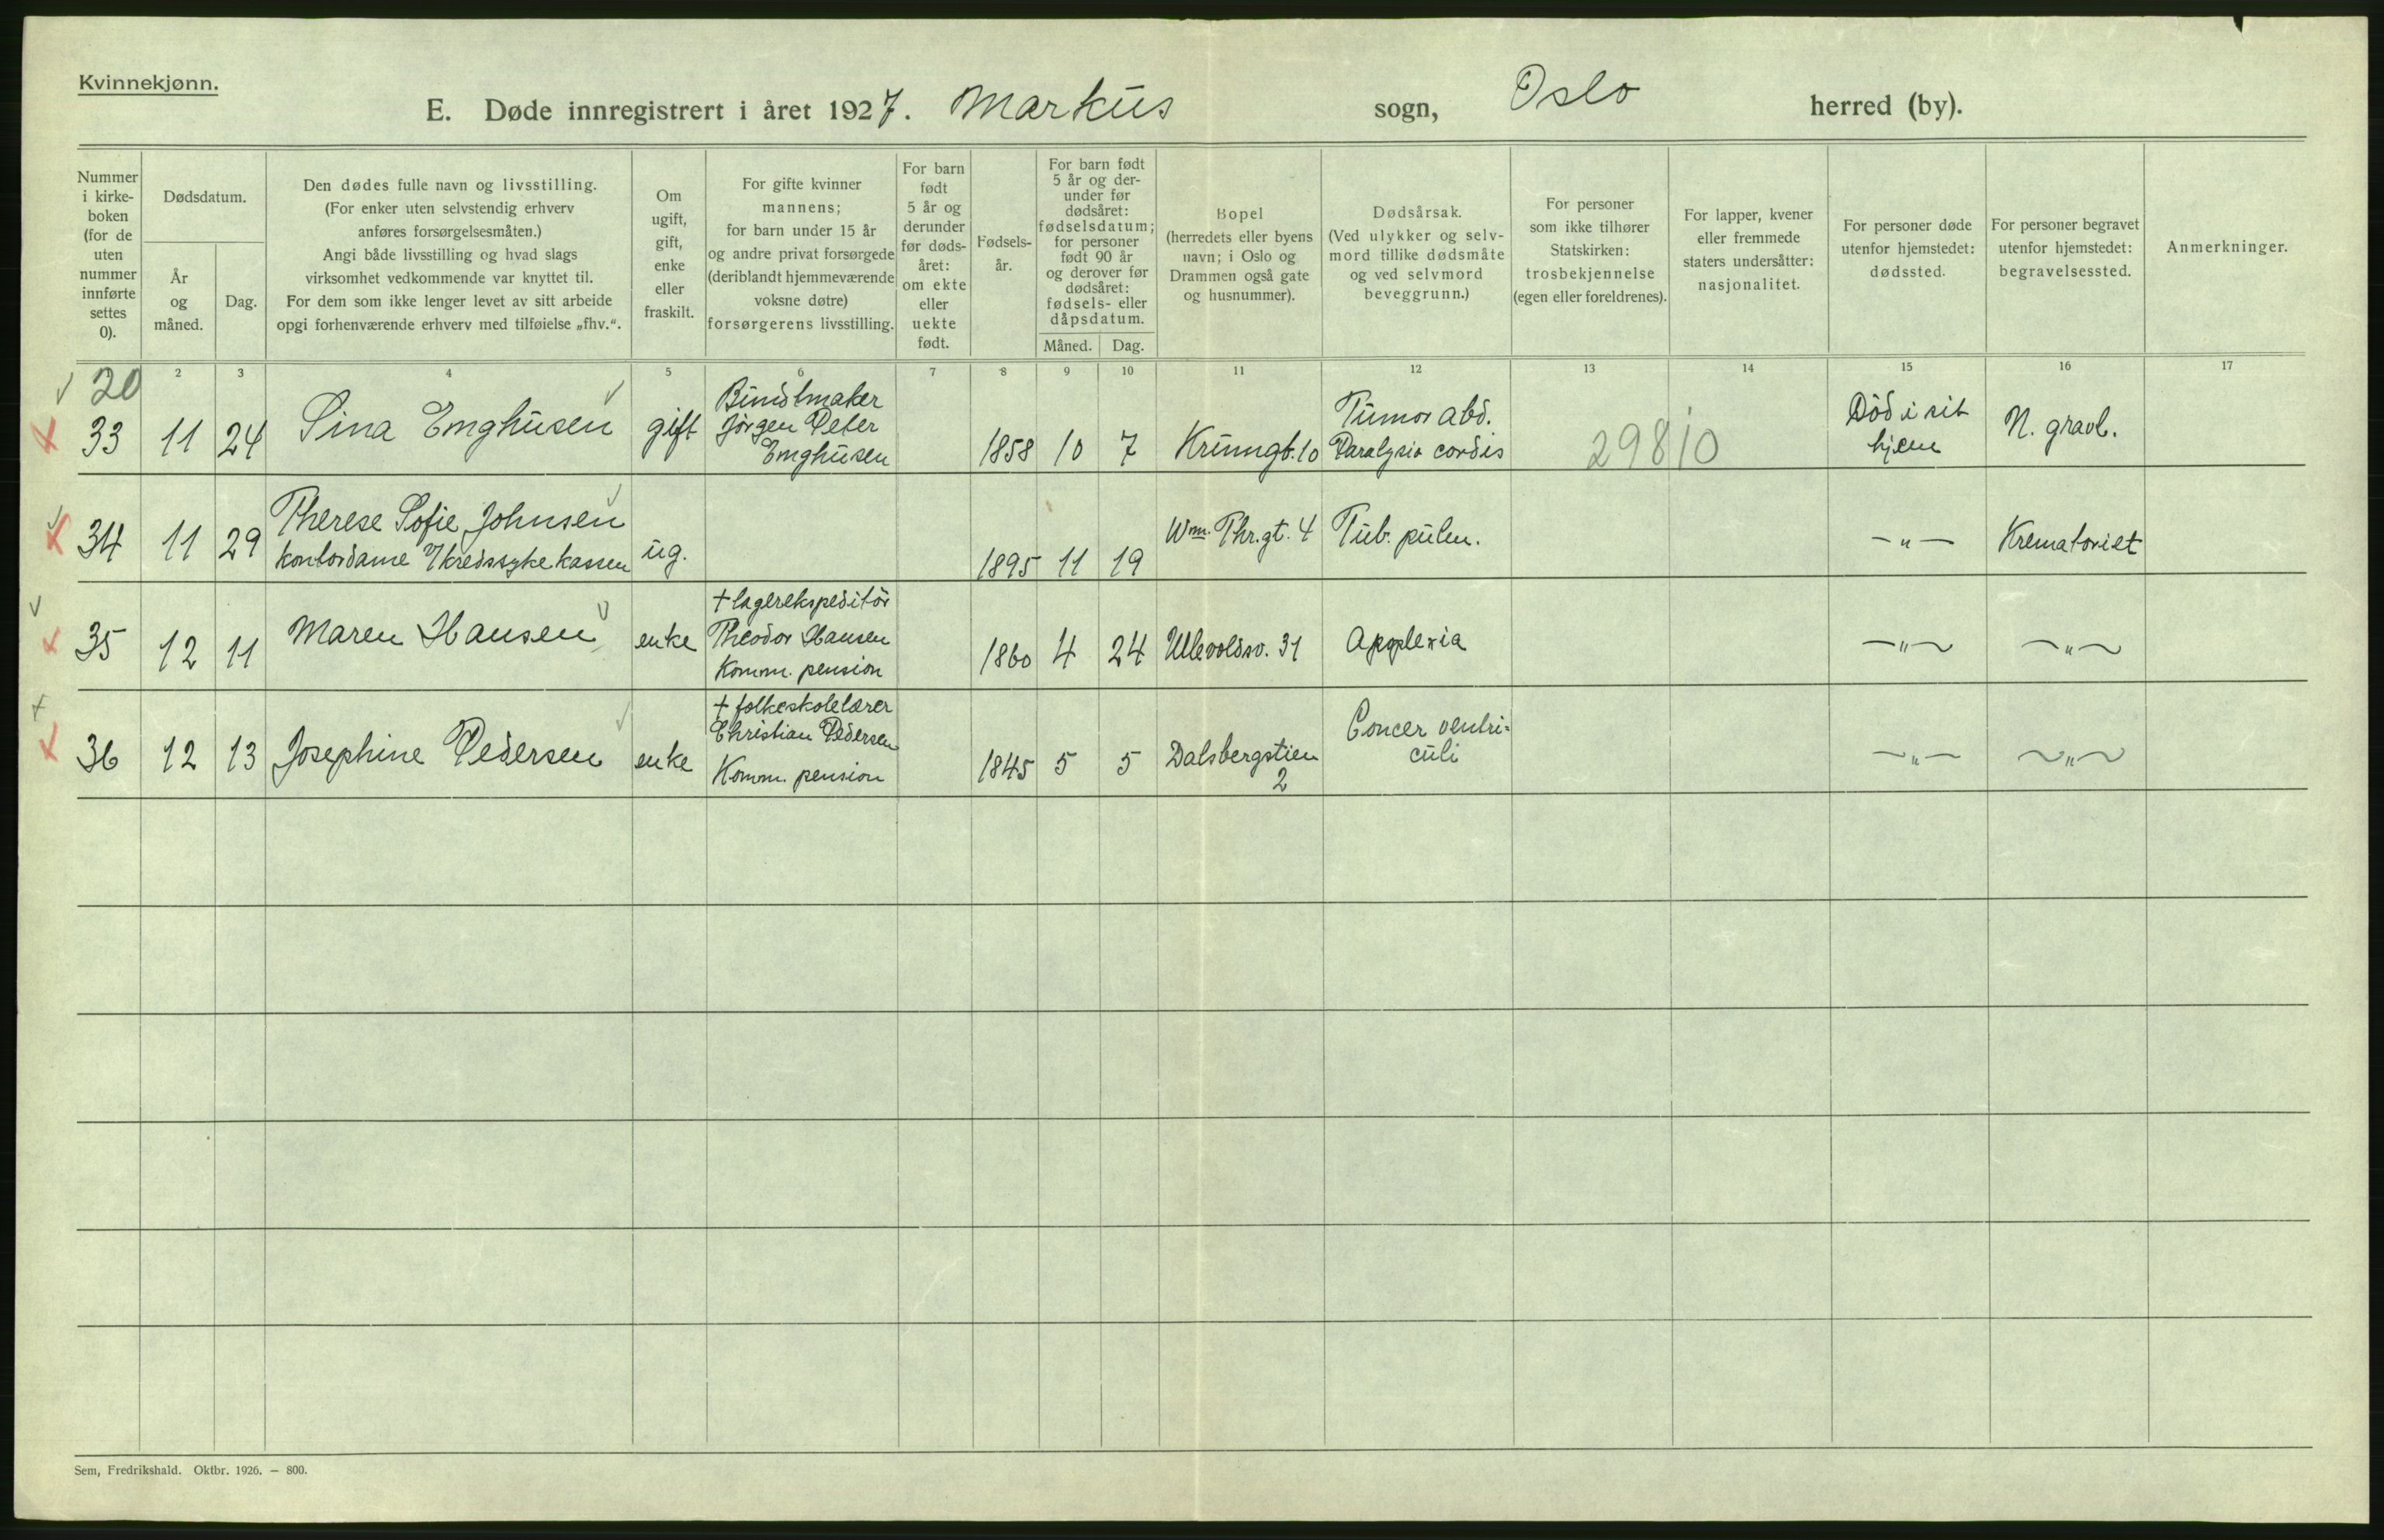 Kvinnekjønn.
E. Døde innregistrert i året 1927. Markus sogn, Oslo herred (by).
Nummer i kirke- boken (for de uten nummer innførte settes 0).
Dødsdatum.
År og måned.
Dag.
Den dødes fulle navn og livsstilling.
(For enker uten selvstendig erhverv
anføres forsørgelsesmåten.)
Angi både livsstilling og hvad slags
virksomhet vedkommende var knyttet til.
For dem som ikke lenger levet av sitt arbeide
opgi forhenværende erhverv med tilføielse „fhv.“.
Om ugift, gift, enke eller fraskilt.
For gifte kvinner
mannens;
for barn under 15 år
og andre privat forsørgede
(deriblandt hjemmeværende
voksne døtre)
forsørgerens livsstilling.
For barn født 5 år og derunder før døds- året: om ekte eller uekte født.
Fødsels- år.
For barn født
5 år og der-
under før
dødsåret:
fødselsdatum;
for personer
født 90 år
og derover før
dødsåret:
fødsels- eller
dåpsdatum.
Måned. Dag.
Bopel
(herredets eller byens
navn; i Oslo og
Drammen også gate
og husnummer).
Dødsårsak.
(Ved ulykker og selv-
mord tillike dødsmåte
og ved selvmord
beveggrunn.)
For personer
som ikke tilhører
Statskirken:
trosbekjennelse
(egen eller foreldrenes).
For lapper, kvener
eller fremmede
staters undersåtter:
nasjonalitet.
For personer døde
utenfor hjemstedet:
dødssted.
For personer begravet
utenfor hjemstedet:
begravelsessted.
Anmerkninger.
20 2 3 4 5 6 7 8 9 10 11 12 13 14 15 16 17
33 11 24 Sina Emghusen gift Bundtmaker Jørgen Peter Emghusen 1858 10 7 Krumgt. 10 Tumor abd. Paralysis cordis 29810 Död i sit hjem N. gravl.
34 11 29 Therese Sofie Johnsen kontordame v/kredssykekassen ug. 1895 11 19 Wm. Thr.gt. 4 Tub. pulm. —"— Krematoriet
35 12 11 Maren Hansen enke + lagerekspeditör Theodor Hansen Komm. pension 1860 4 24 Ullevoldsv. 31 Apoplexia —"— —"—
36 12 13 Josephine Pedersen enke + folkeskolelærer Christian Pedersen Komm. pension 1845 5 5 Dalsbergstien 2 Cancer ventri= culi —"— —"—
Sem, Fredrikshald. Oktbr. 1926. — 800.